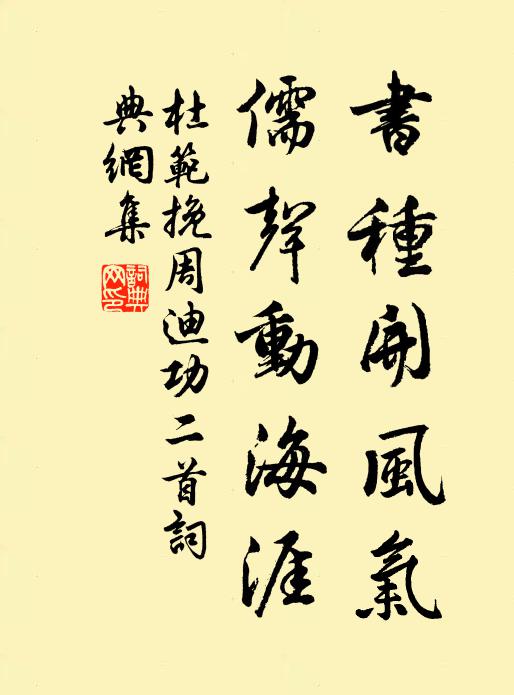 書種開風氣
儒聲動海涯
杜範挽周迪功二首詞
典網集
詞典網印